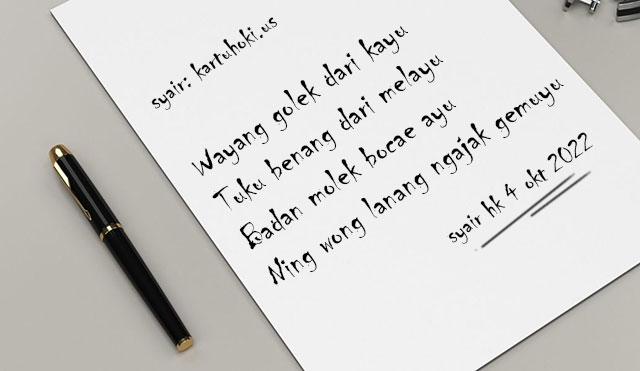 syair: kartuhoki.us
Wayang golek dari kayu
Tuku benang dari melayu
Badan molek bocae ayu
Ning wong lanang ngajak gemuyu
syair hk 4 okt 2022